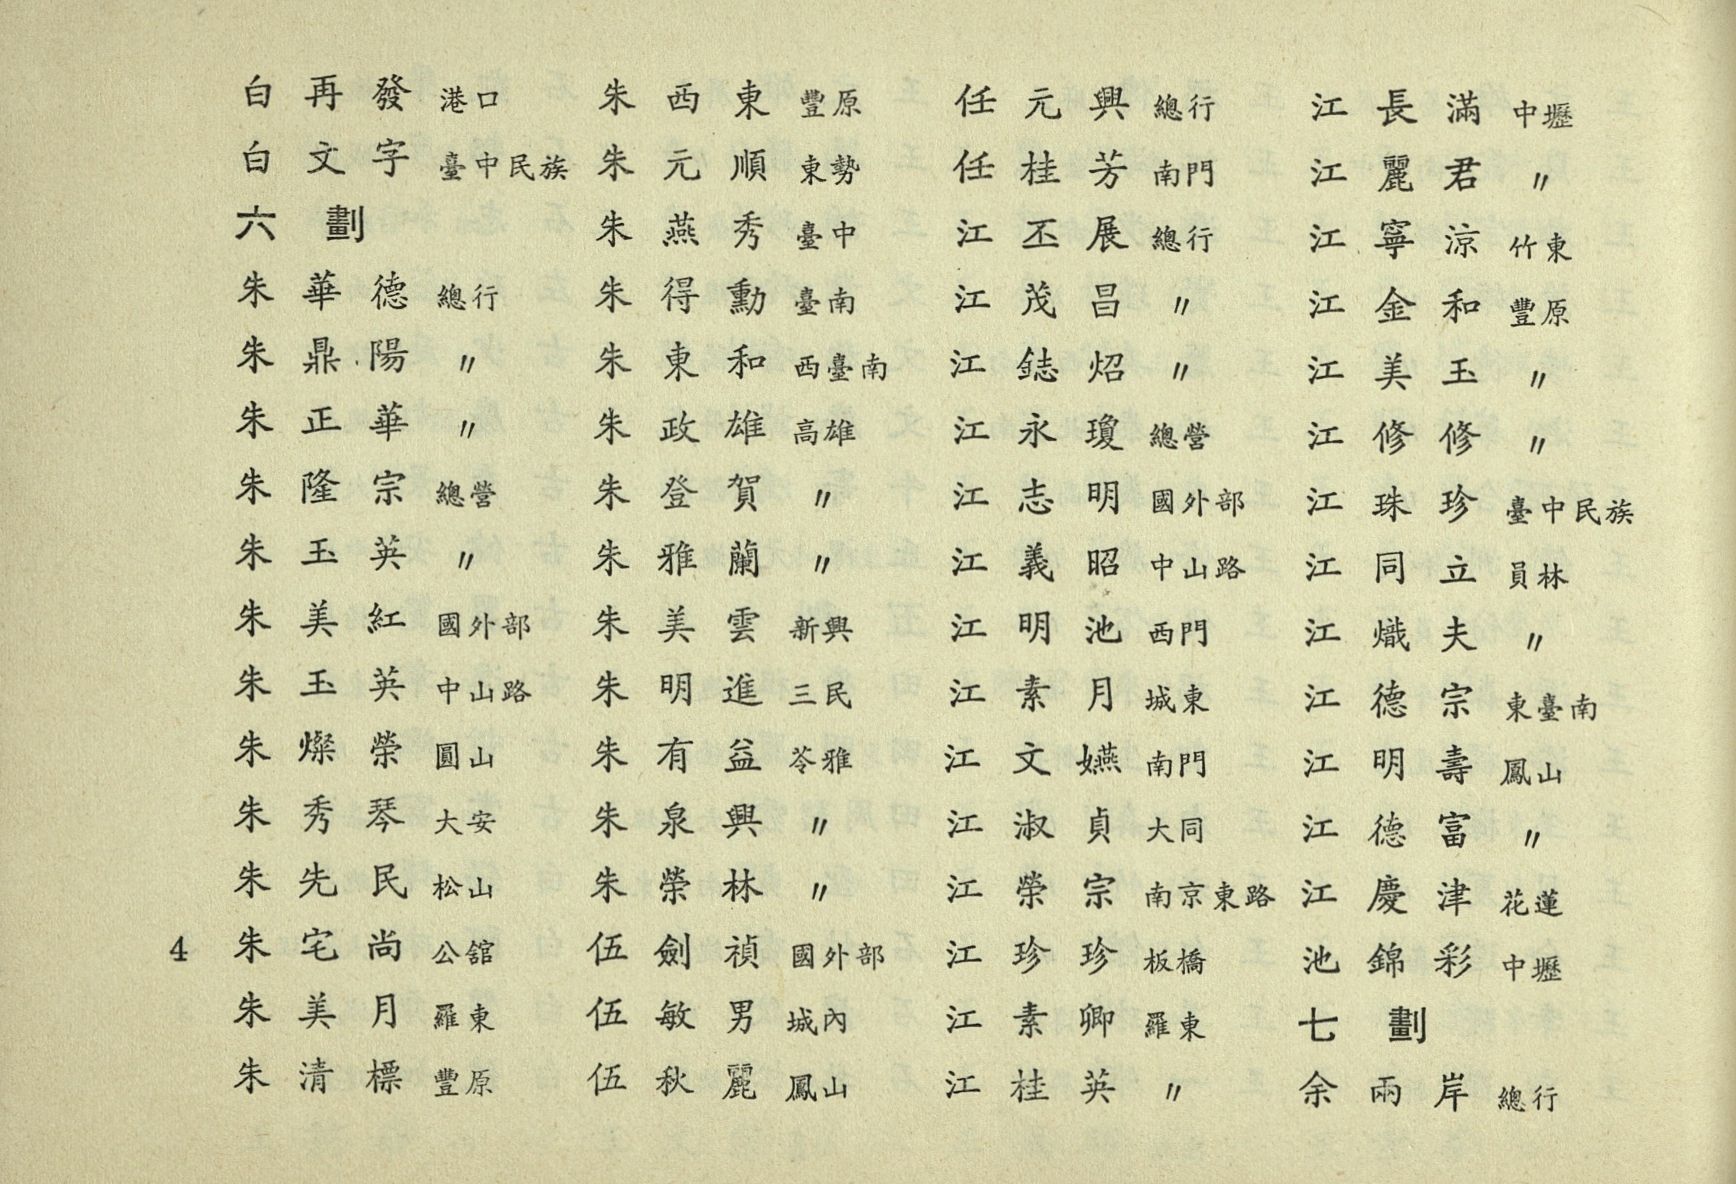 白再發 港口
白文字 臺中民族
六劃
朱華德 總行
朱鼎陽 〃
朱正華 〃
朱隆宗 總營
朱玉英 〃
朱美紅 國外部
朱玉英 中山路
朱燦榮 圓山
朱秀琴 大安
朱先民 松山
朱宅尚 公舘
朱美月 羅東
朱清標 豐原
朱西東 豐原
朱元順 東勢
朱燕秀 臺中
朱得勳 臺南
朱東和 西臺南
朱政雄 高雄
朱登賀 〃
朱雅蘭 〃
朱美雲 新興
朱明進 三民
朱有益 苓雅
朱泉興 〃
朱榮林 〃
伍劍禎 國外部
伍敏男 城內
伍秋麗 鳳山
任元興 總行
任桂芳 南門
江丕展 總行
江茂昌 〃
江鋕炤 〃
江永瓊 總營
江志明 國外部
江義昭 中山路
江明池 西門
江素月 城東
江文嬿 南門
江淑貞 大同
江榮宗 南京東路
江珍珍 板橋
江素卿 羅東
江桂英 〃
江長滿 中壢
江麗君 〃
江寧涼 竹東
江金和 豐原
江美玉 〃
江修修 〃
江珠珍 臺中民族
江同立 員林
江熾夫 〃
江德宗 東臺南
江明壽 鳳山
江德富 〃
江慶津 花蓮
池錦彩 中壢
七劃
余兩岸 總行
4